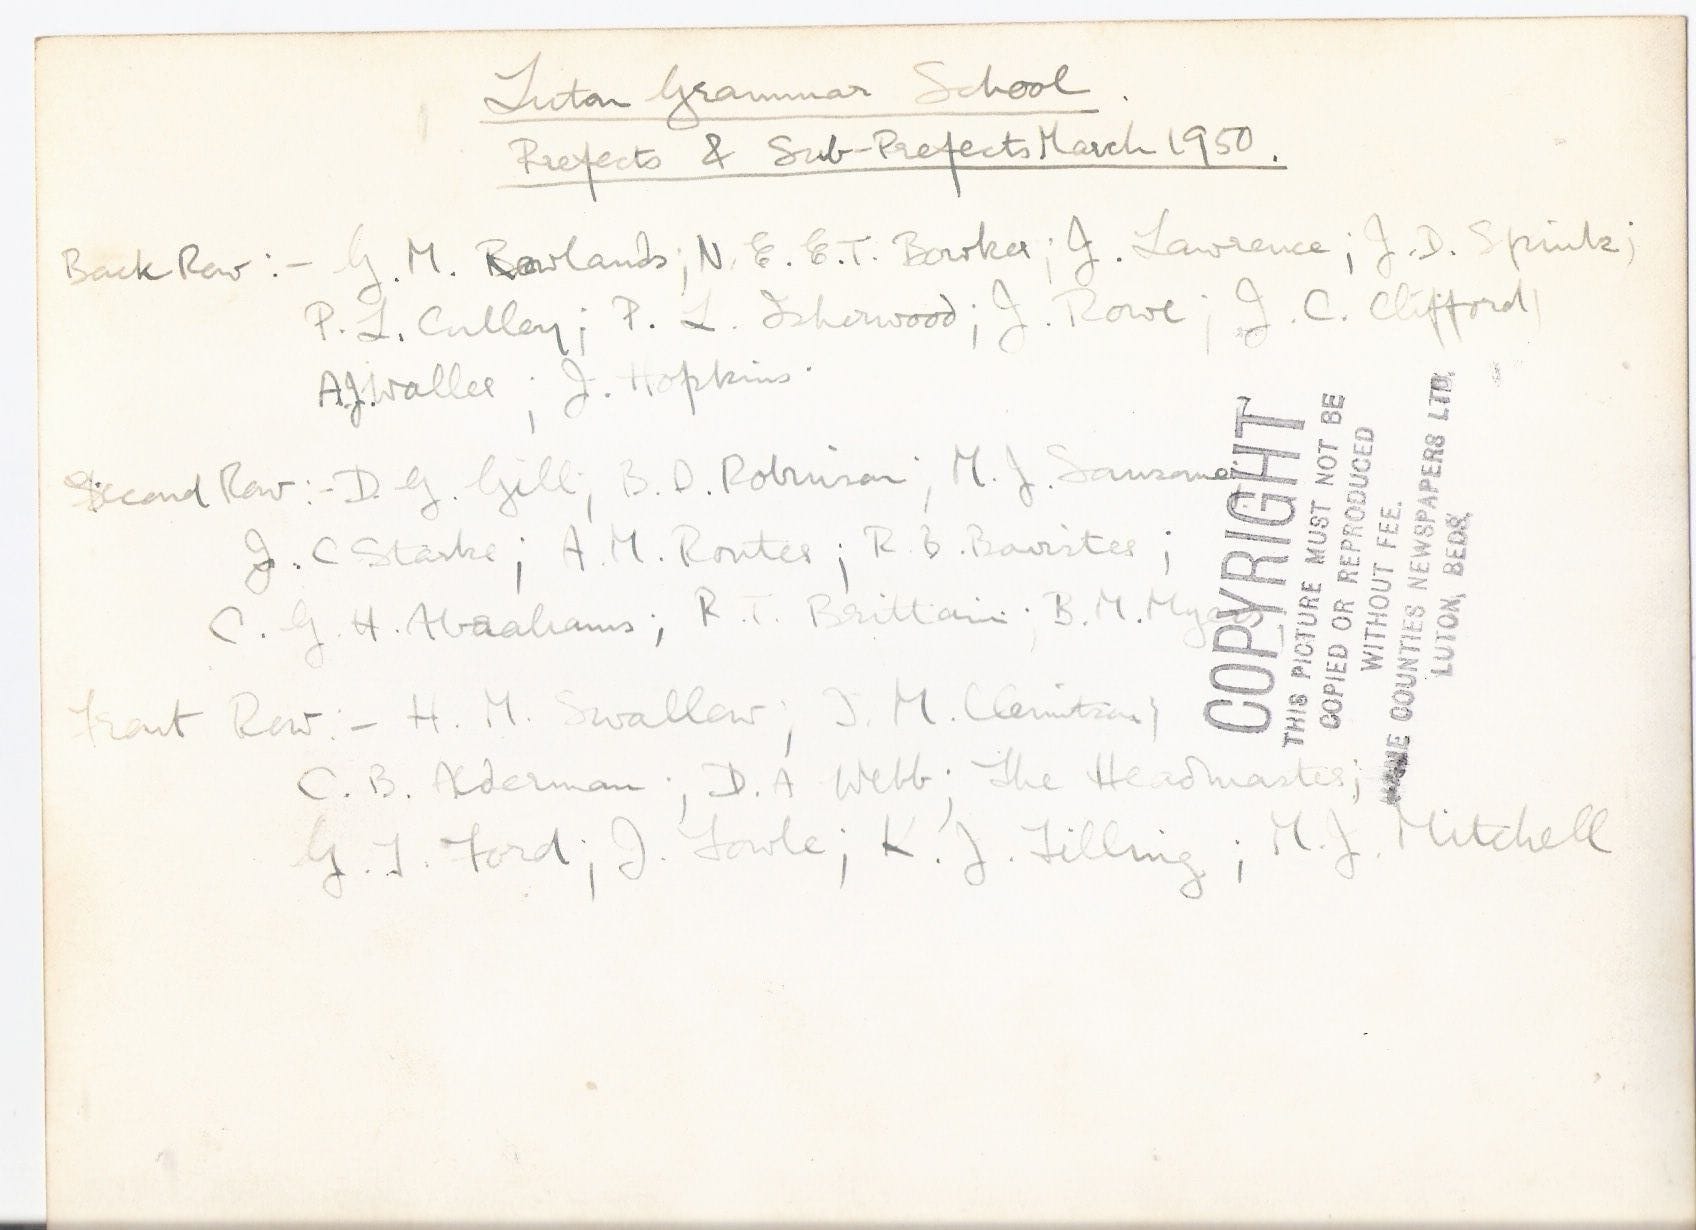 Luton Grammar School.
Prefects & Sub-Prefects March 1950.
Back Row :- G. M. Rowlands; N. E. E. T. Bowker; J. Lawrence; J. D. Spink;
P. L. Culley; P. L. Isherwood; J. Rowe; J. C. Clifford;
A.J. Waller; J. Hopkins.
Second Row :- D. G. Gill; B. D. Robinson; M. J. Sansome;
J. C Starke; A. M. Routes; R. B. Bavister;
C. G. H. Abrahams; R. T. Brittain; B. M. Myers
Front Row :- H. M. Swallow; I. M. Clemitson;
C. B. Alderman; D. A Webb; The Headmaster;
G. T. Ford; J. Fowle; K. J. Filling; M. J. Mitchell
COPYRIGHT
THIS PICTURE MUST NOT BE
COPIED OR REPRODUCED
WITHOUT FEE.
COUNTIES NEWSPAPERS LTD.
LUTON, BEDS.